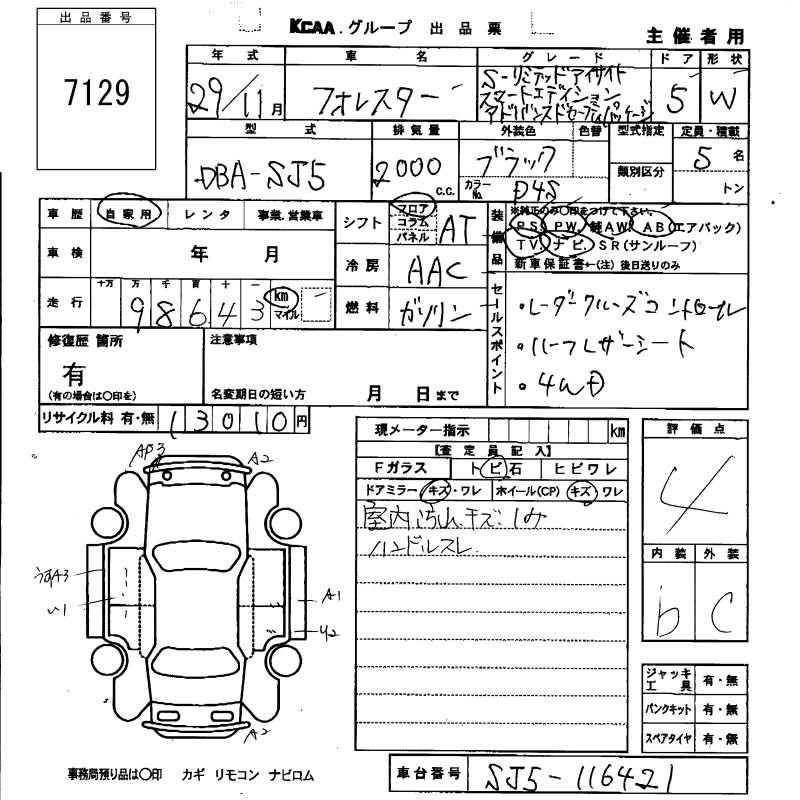 出品番号
7129
KCAA.グループ 出品票
主催者用
年式 車名 グレード ドア 形状
29/11月 フォレスター S-リミテッドアイサイト
スマートエディション
アドバンスドセーフティパッケージ
5 W
型式 排気量 外装色 色替 型式指定 定員・積載
DBA-SJ5 2000 c.c. ブラック 類別区分 5名
カラーNo. D4S トン
車歴 自家用 レンタ 事業.営業車
車検 年 月
走行 十万 万 千 百 十 一
98643 km マイル
シフト フロア コラム パネル AT
冷房 AAC
燃料 ガソリン
装備品 ※純正のみ○印をつけて下さい。
PS PW 純AW AB(エアバック)
TV ナビ SR(サンルーフ)
新車保証書←(注)後日送りのみ
セールスポイント
・レーダークルーズコントロール
・ハーフレザーシート
・4WD
修復歴 箇所
有
(有の場合は○印を)
注意事項
名変期日の短い方 月 日まで
リサイクル料 有・無 13010円
現メーター指示 km
【査定員記入】
Fガラス トビ石 ヒビワレ
ドアミラー キズ・ワレ ホイール(CP) キズ ワレ
室内汚れ.キズ.
ハンドルスレ
評価点
4
内装 外装
b C
AP3
A2
A3
A1
A2
ジャッキ工具 有・無
パンクキット 有・無
スペアタイヤ 有・無
事務局預り品は○印 カギ リモコン ナビロム
車台番号 SJ5-116421